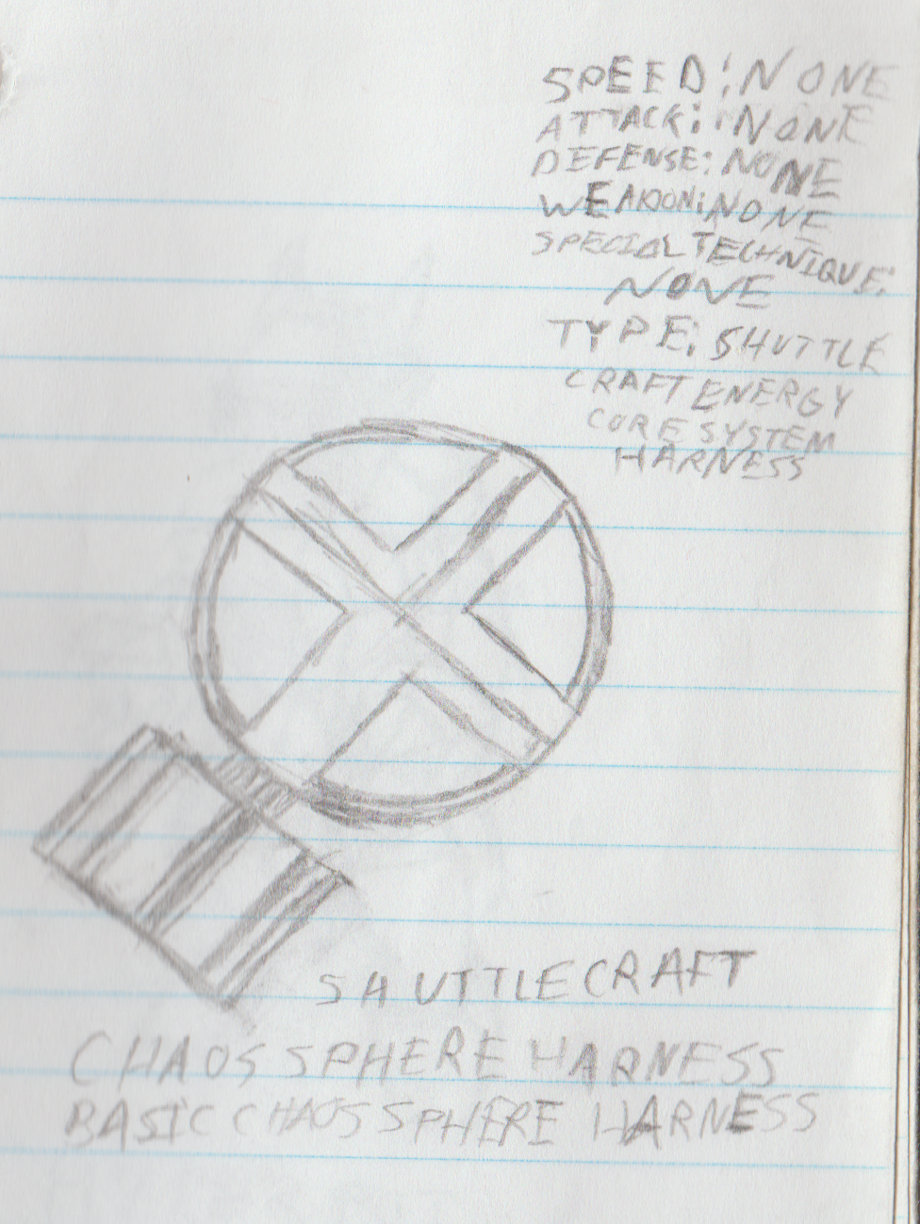 SPEED: NONE
ATTACK: NONE
DEFENSE: NONE
WEAPON: NONE
SPECIAL TECHNIQUE:
NONE
TYPE: SHUTTLE
CRAFT ENERGY
CORE SYSTEM
HARNESS
SHUTTLECRAFT
CHAOS SPHERE HARNESS
BASIC CHAOS SPHERE HARNESS